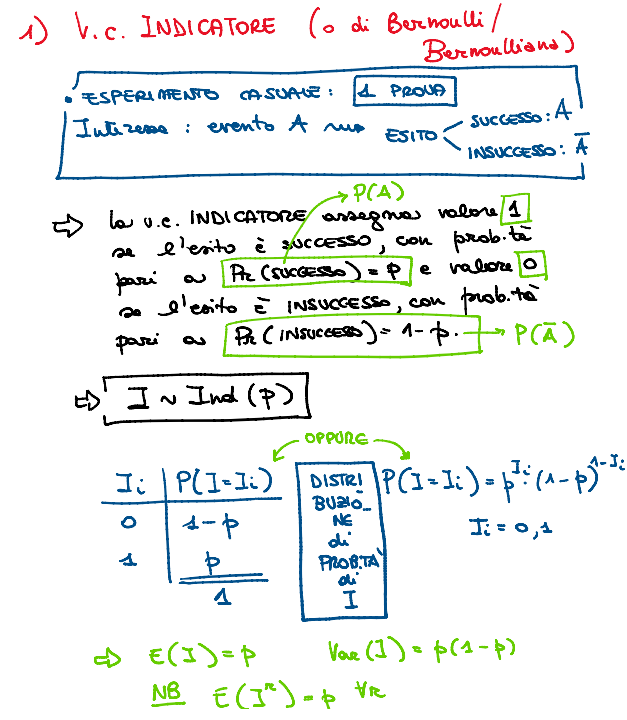 1) V.c. INDICATORE (o di Bernoulli/
Bernoulliana)
• ESPERIMENTO CASUALE: 1 PROVA
Interesse: evento A
ESITO
SUCCESSO: A
INSUCCESSO: Ā
P(A)
⇨ la v.c. INDICATORE assegna valore 1
se l'esito è SUCCESSO, con prob.tà
pari a Pr(SUCCESSO) = p e valore 0
se l'esito è INSUCCESSO, con prob.tà
pari a Pr(INSUCCESSO) = 1-p. → P(Ā)
⇨ I ~ Ind(p)
OPPURE
Ii P(I=Ii)
0 1-p
1 p
1
DISTRI
BUZIO_
NE
di
PROB.TA'
di
I
P(I=Ii) = p^Ii · (1-p)^1-Ii
Ii = 0,1
⇨ E(I) = p Var(I) = p(1-p)
NB E(I^r) = p ∀r